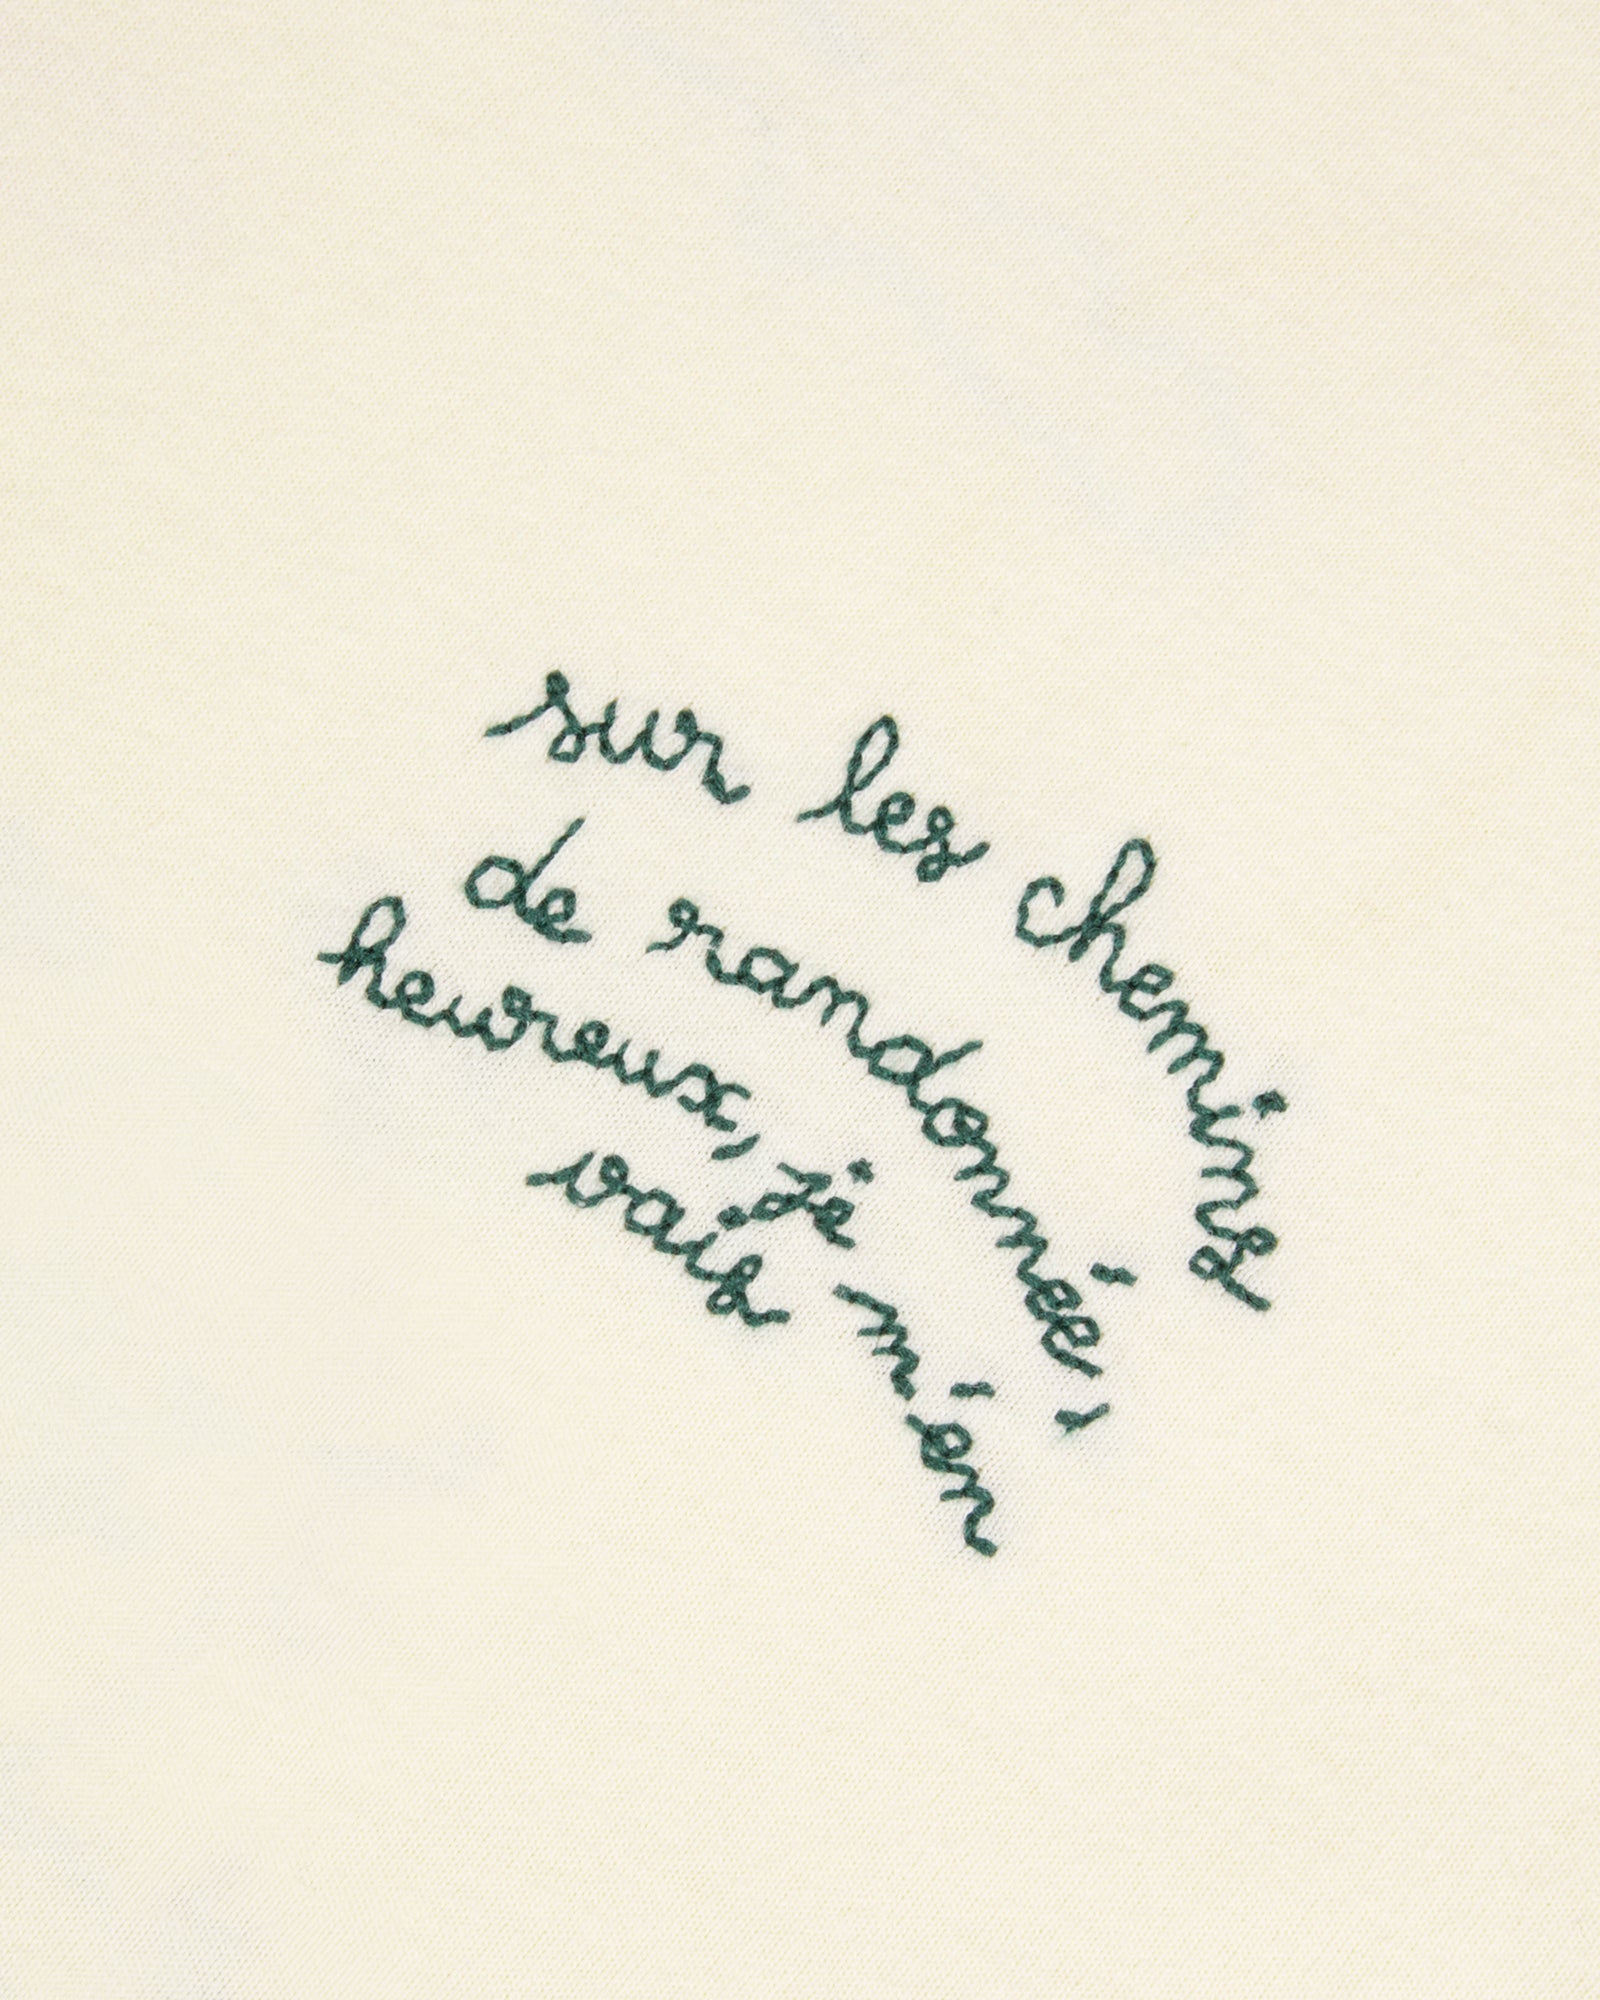 sur les chemins
de randonnée,
heureux, je m'en
vais